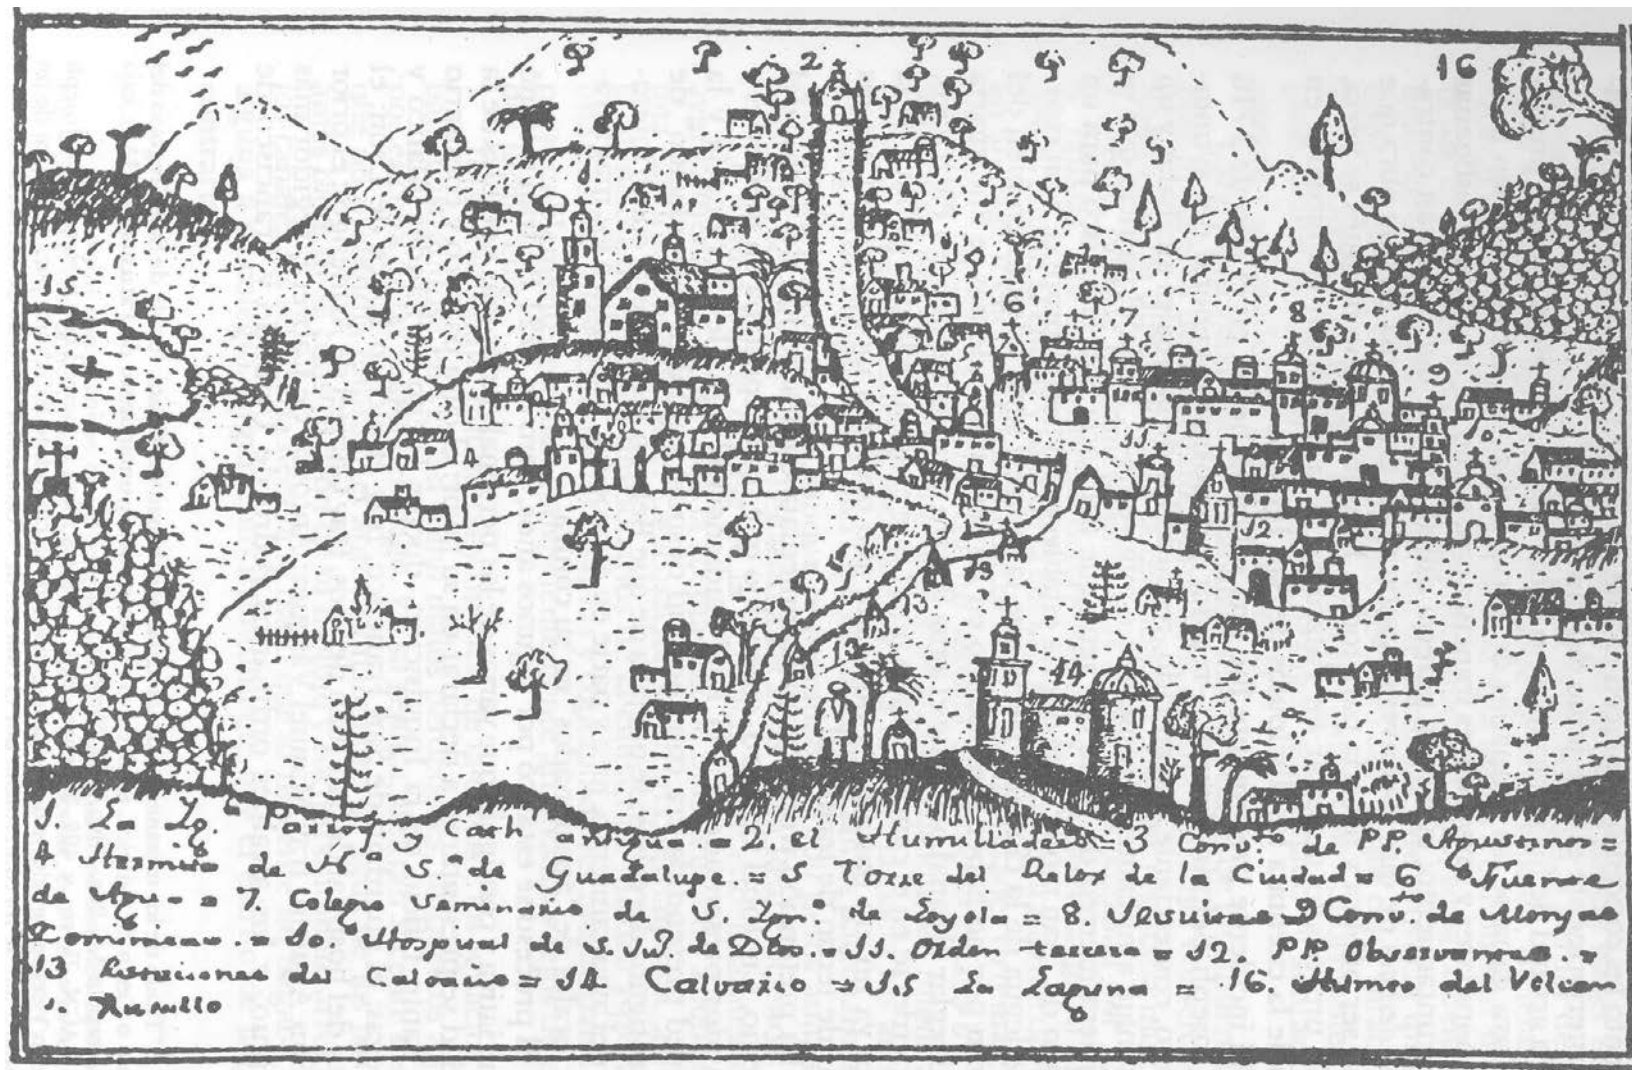 2
16
1
15
6
7
8
3
9
4
5
10
11
12
13
13
13
14
1. La Yg.ª Parroq. y Cath antigua. = 2. el Humilladero = 3 Conv.to de PP. Agustinos =
4 Hermita de N.ª S.ª de Guadalupe. = 5 Torre del Relox de la Ciudad = 6 Fuente
de Agua = 7. Colegio Seminario de S. Ygn.º de Loyola = 8. Jesuitas 9 Conv.to de Monjas
Dominicas. = 10. Hospital de S. Ju. de Dios. = 11. Orden tercera = 12. P.P. Observantes. =
13 Estaciones del Calvario = 14 Calvario = 15 La Laguna = 16. Humo del Volcan